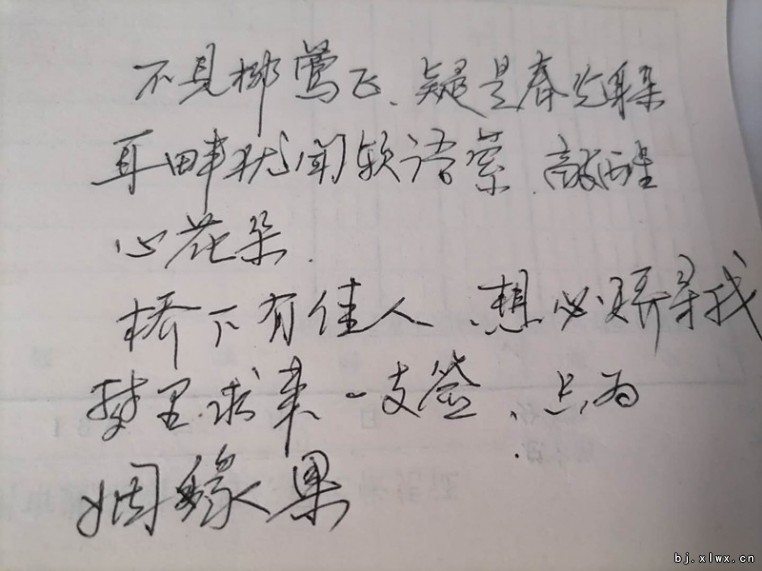 不见柳莺飞、疑是春光躲
耳畔犹闻软语萦、敲醒
心花朵.
桥下有佳人、想必寻我
梦里求来一支签、只为
姻缘果
bj.xlwx.cn